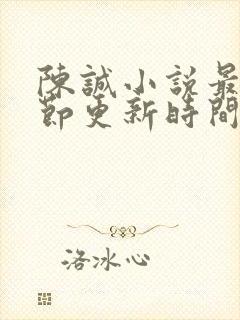 陳誠小說最
節更新時間
洛冰心